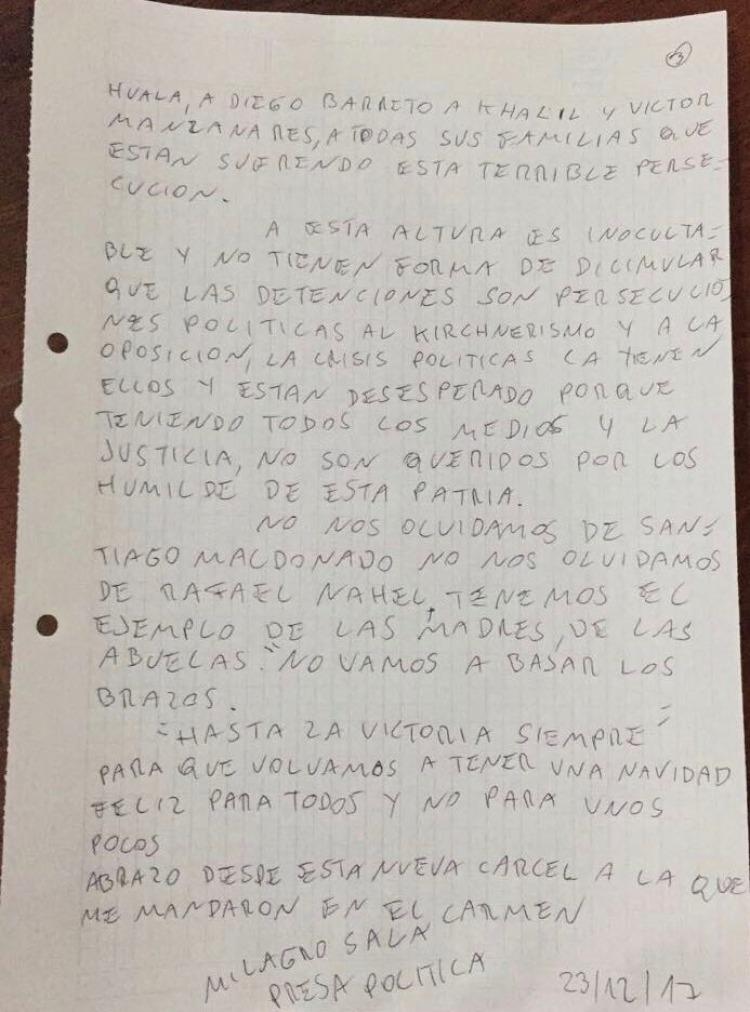 3
HUALA, A DIEGO BARRETO A KHALIL Y VICTOR
MANZANARES, A TODAS SUS FAMILIAS QUE
ESTAN SUFRENDO ESTA TERRIBLE PERSE-
CUCION.
A ESTA ALTURA ES INOCULTA-
BLE Y NO TIENEN FORMA DE DICIMULAR
QUE LAS DETENCIONES SON PERSECUCIO-
NES POLITICAS AL KIRCHNERISMO Y A LA
OPOSICION, LA CRISIS POLITICAS LA TIENEN
ELLOS Y ESTAN DESESPERADO PORQUE
TENIENDO TODOS LOS MEDIOS Y LA
JUSTICIA, NO SON QUERIDOS POR LOS
HUMILDE DE ESTA PATRIA.
NO NOS OLVIDAMOS DE SAN-
TIAGO MALDONADO NO NOS OLVIDAMOS
DE RAFAEL NAHEL, TENEMOS EL
EJEMPLO DE LAS MADRES, DE LAS
ABUELAS. "NO VAMOS A BAJAR LOS
BRAZOS.
"HASTA LA VICTORIA SIEMPRE"
PARA QUE VOLVAMOS A TENER UNA NAVIDAD
FELIZ PARA TODOS Y NO PARA UNOS
POCOS
ABRAZO DESDE ESTA NUEVA CARCEL A LA QUE
ME MANDARON EN EL CARMEN
MILAGRO SALA
PRESA POLITICA
23/12/17